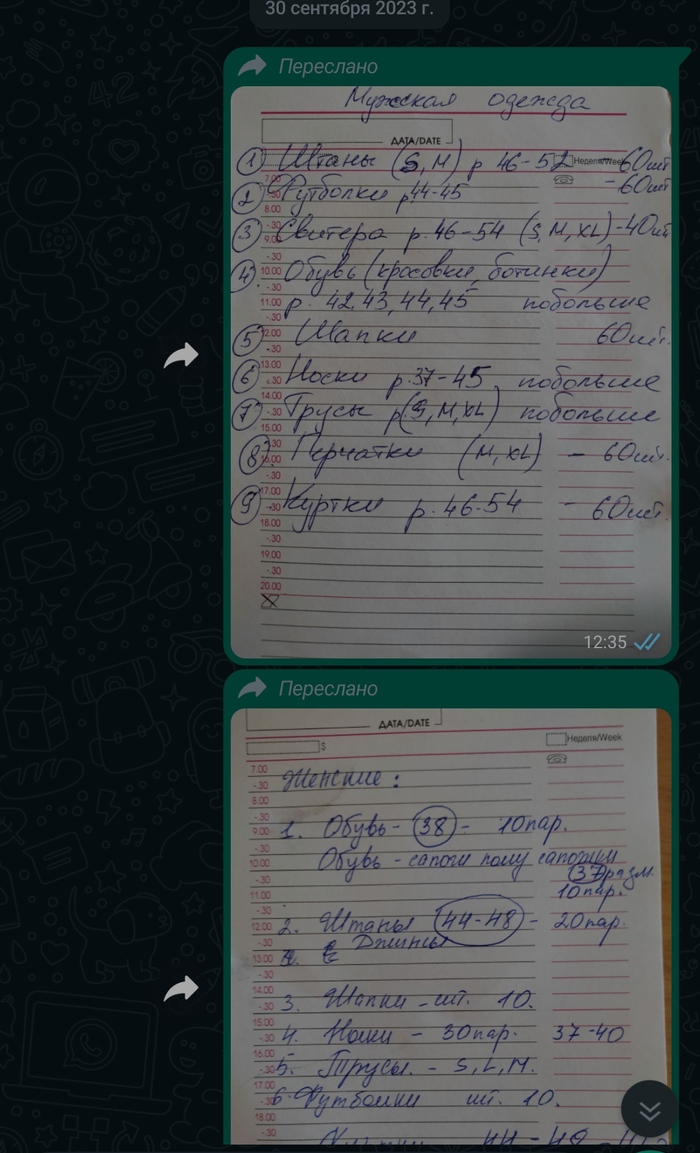 30 сентября 2023 г.
Переслано
Мужская одежда
ДАТА/DATE
Неделя/Week
① Штаны (S, M) р 46-52 60шт
② Футболки р44-45 - 60шт
③ Свитера р. 46-54 (S, M, XL) - 40шт
④ Обувь (кросовки, ботинки)
р. 42,43,44,45 побольше
⑤ Шапки 60шт.
⑥ Носки р.37-45 побольше
⑦ Трусы р(S, M, XL) побольше
⑧ Перчатки (M, XL) - 60шт.
⑨ Куртки р. 46-54 - 60шт.
7.00
8.00
-.30
9.00
-.30
10.00
-.30
11.00
-.30
12.00
-.30
13.00
-.30
14.00
-.30
15.00
-.30
16.00
-.30
17.00
-.30
18.00
-.30
19.00
-.30
20.00
12:35
Переслано
ДАТА/DATE
Неделя/Week
$
Женские:
1. Обувь - 38 - 10пар.
Обувь - сапоги полу сапожки
37 разм.
10пар.
2. Штаны 44-48 - 20пар.
Джинсы
3. Шапки - шт. 10.
4. Носки - 30пар. 37-40
5. Трусы. - S, L, M.
6. Футболки шт. 10.
7.00
-.30
8.00
-.30
9.00
-.30
10.00
-.30
11.00
-.30
12.00
-.30
13.00
-.30
14.00
-.30
15.00
-.30
16.00
-.30
17.00
-.30
18.00
-.30